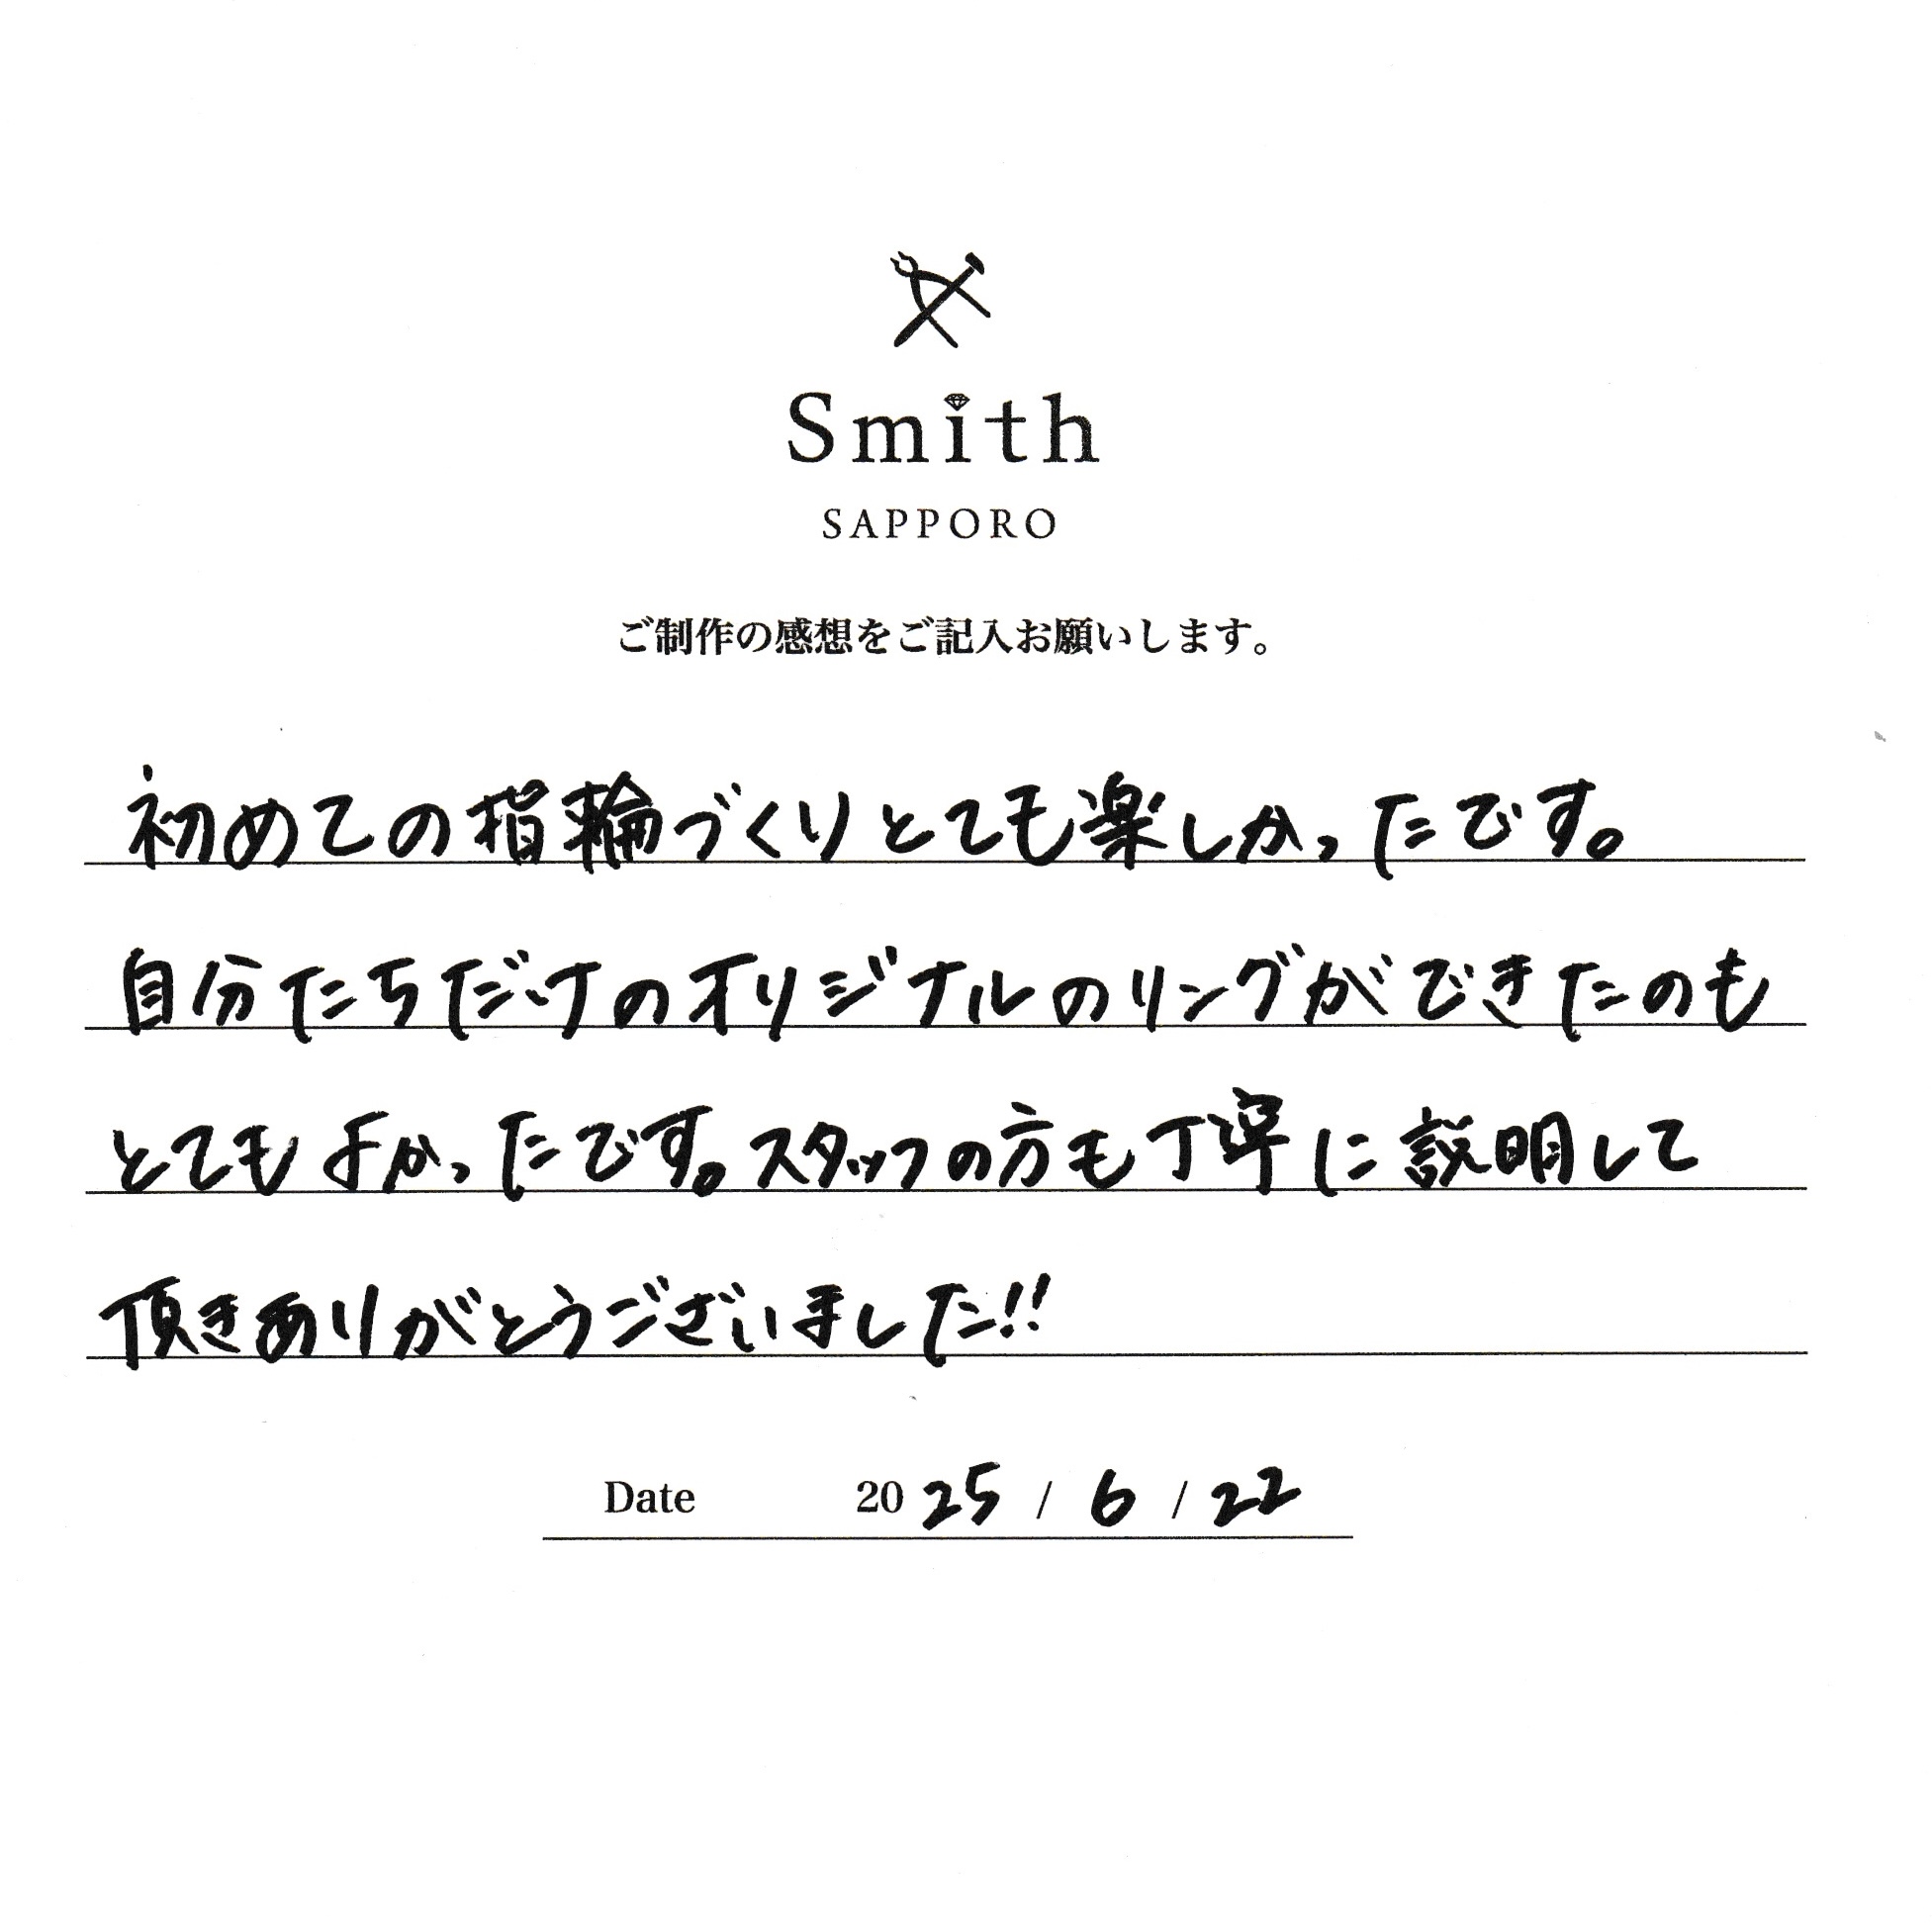 Smith
SAPPORO
ご制作の感想をご記入お願いします。
初めての指輪づくりとても楽しかったです。
自分たちだけのオリジナルのリングができたのも
とてもよかったです。スタッフの方も丁寧に説明して
頂きありがとうございました!!
Date 2025 / 6 / 22